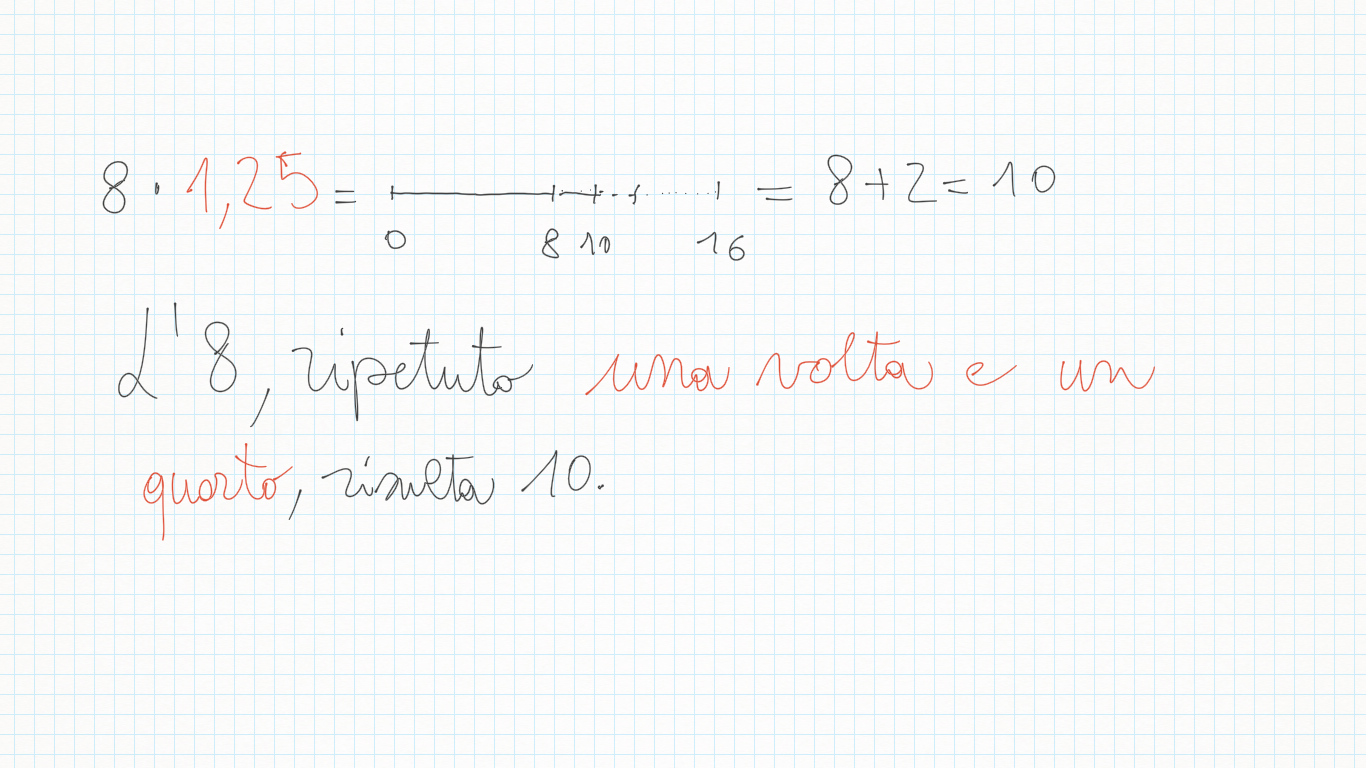 8 · 1,25 = = 8 + 2 = 10
0 8 10 16
L'8, ripetuto una volta e un
quarto, risulta 10.